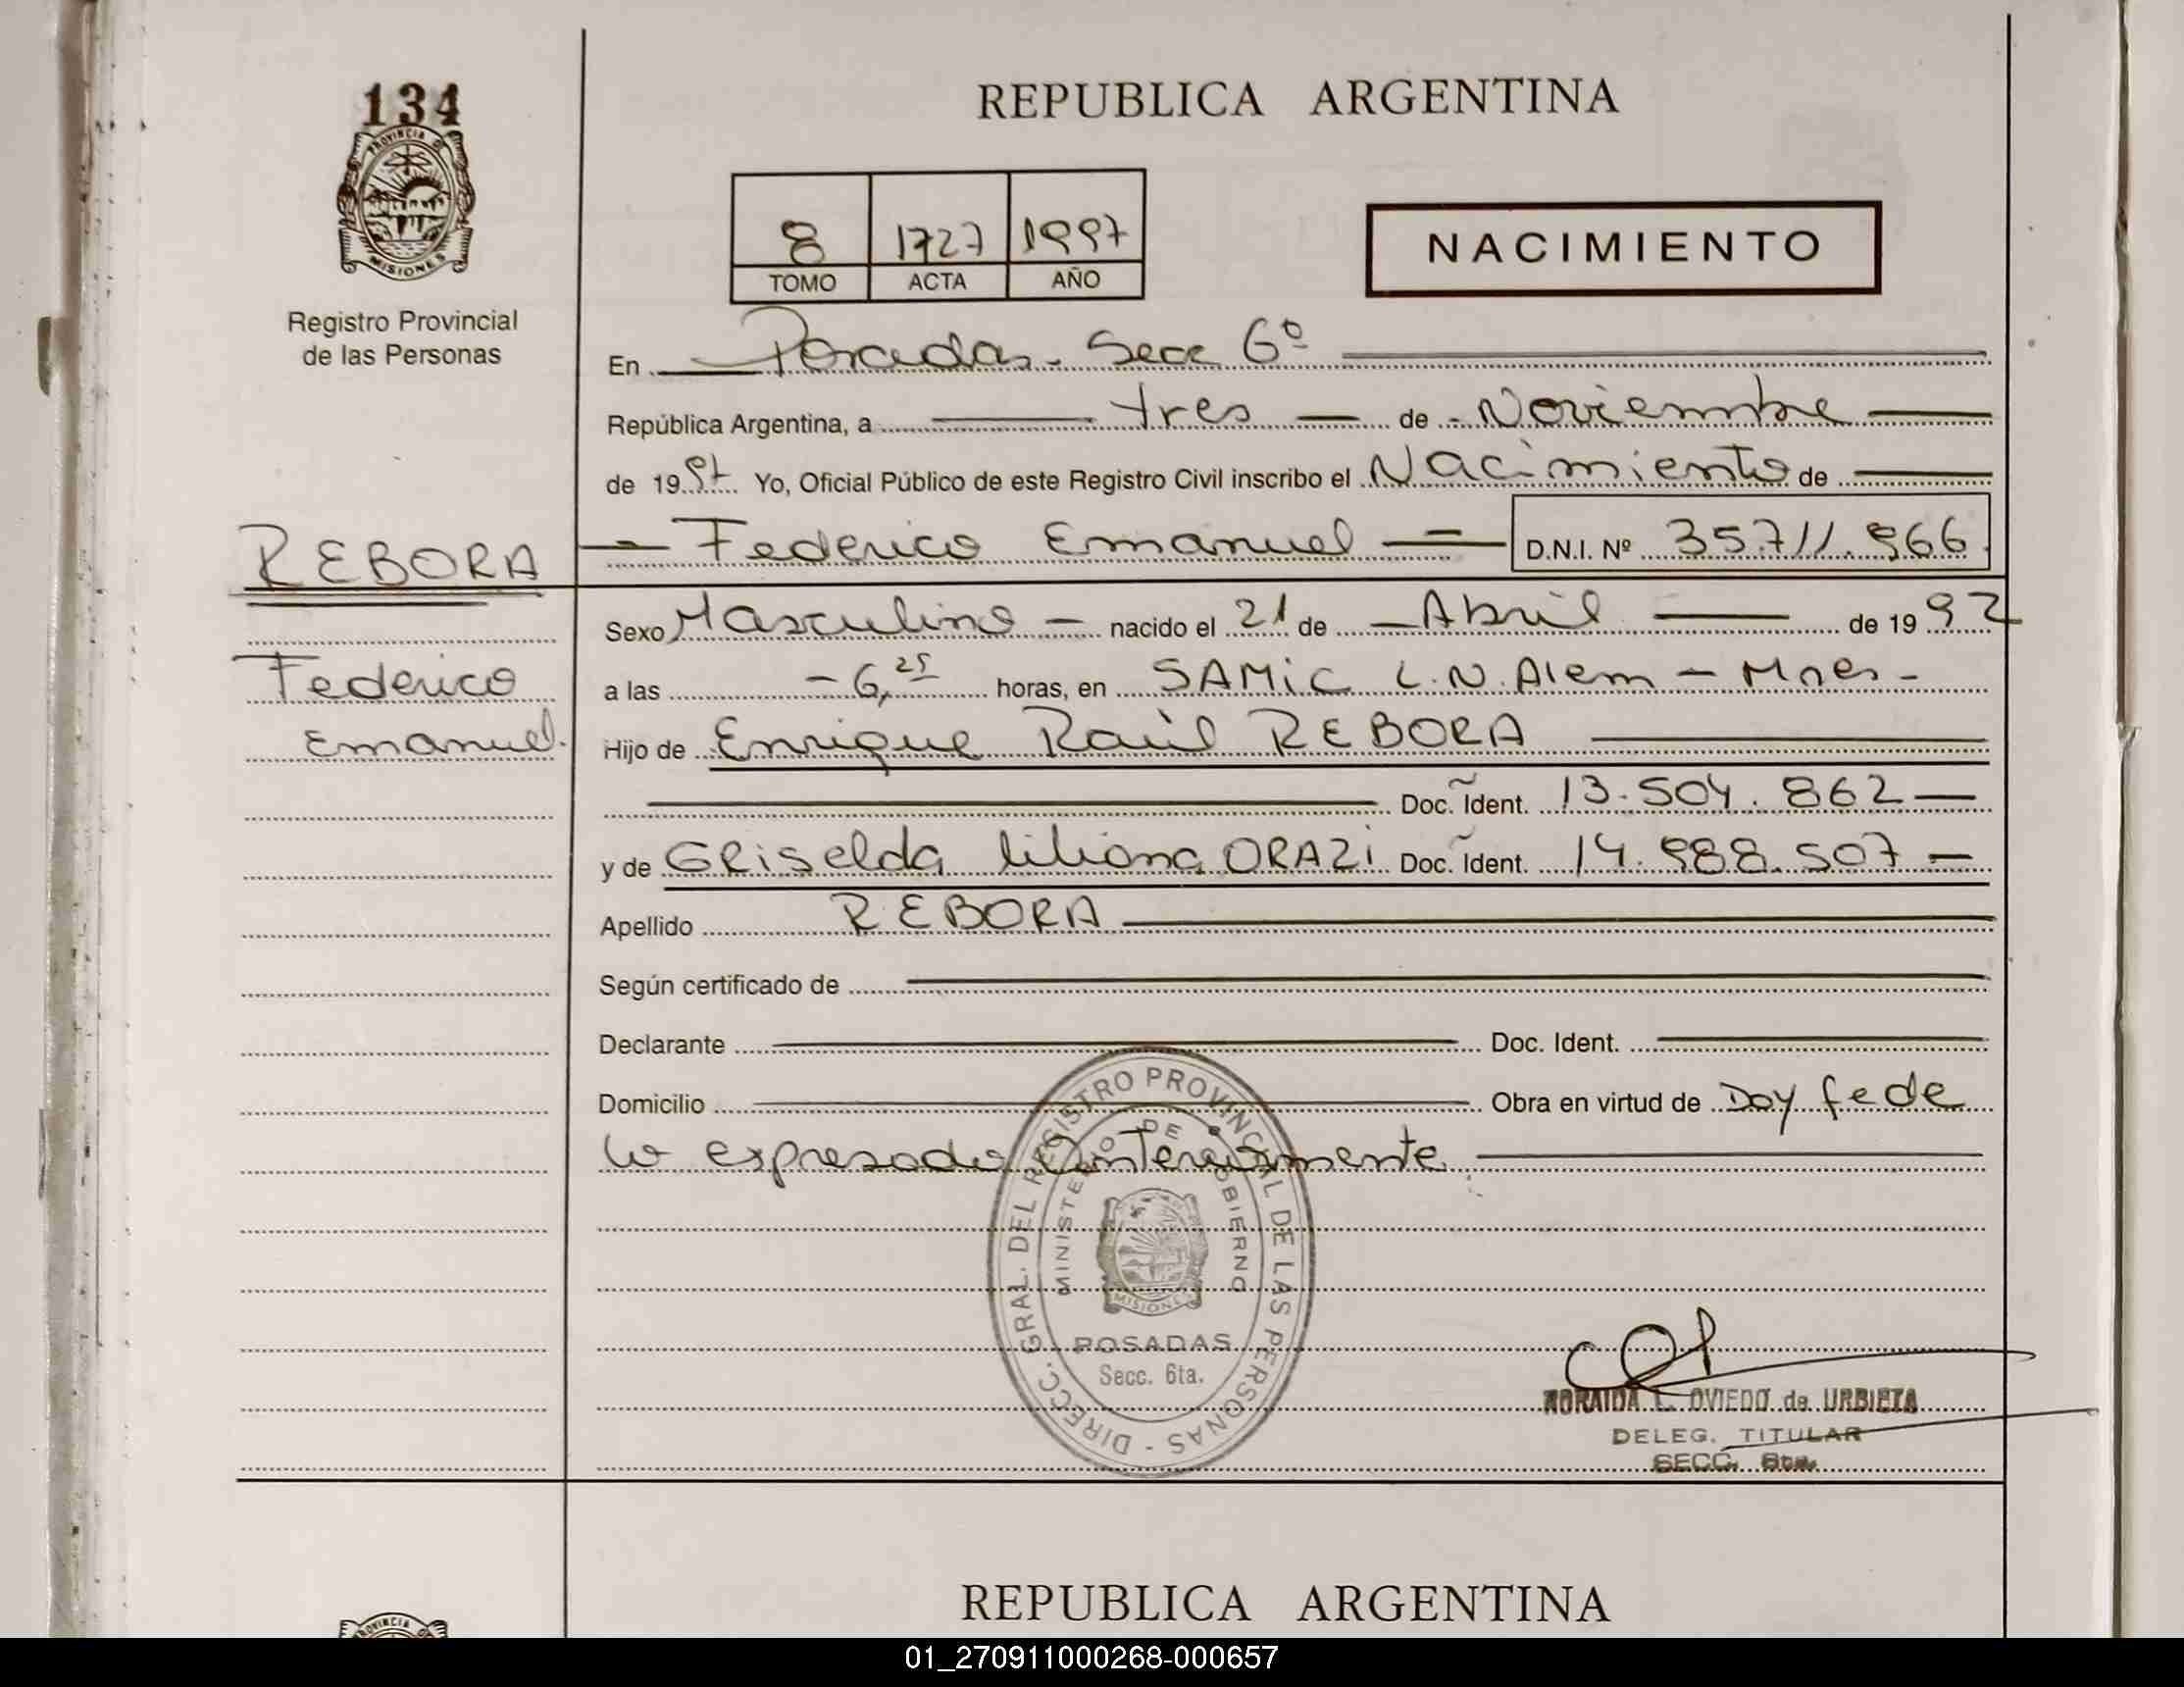 134
PROVINCIA D
MISIONES
Registro Provincial
de las Personas
REPUBLICA ARGENTINA
8 1727 1997
TOMO ACTA AÑO
NACIMIENTO
En Posadas - Secc 6º
República Argentina, a tres de Noviembre
de 1997 Yo, Oficial Público de este Registro Civil inscribo el Nacimiento de
REBORA
Federico Emanuel D.N.I. Nº 35.711.966
Sexo Masculino nacido el 21 de Abril de 1992
Federico
a las 6,25 horas, en SAMiC L.N. Alem - Mnes -
Emanuel.
Hijo de Enrique Raúl REBORA
Doc. Ident. 13.504.862
y de GRiselda liliana ORAZi Doc. Ident. 14.988.507
Apellido REBORA
Según certificado de
Declarante Doc. Ident.
Domicilio Obra en virtud de Doy fe de
lo expresado Anteriormente
DIRECC. GRAL. DEL REGISTRO PROVINCIAL DE LAS PERSONAS -
MINISTERIO DE GOBIERNO
MISIONES
POSADAS
Secc. 6ta.
L. OVIEDO de URBIETA
DELEG. TITULAR
SECC. 6ta.
REPUBLICA ARGENTINA
PROVINCIA D
01_270911000268-000657